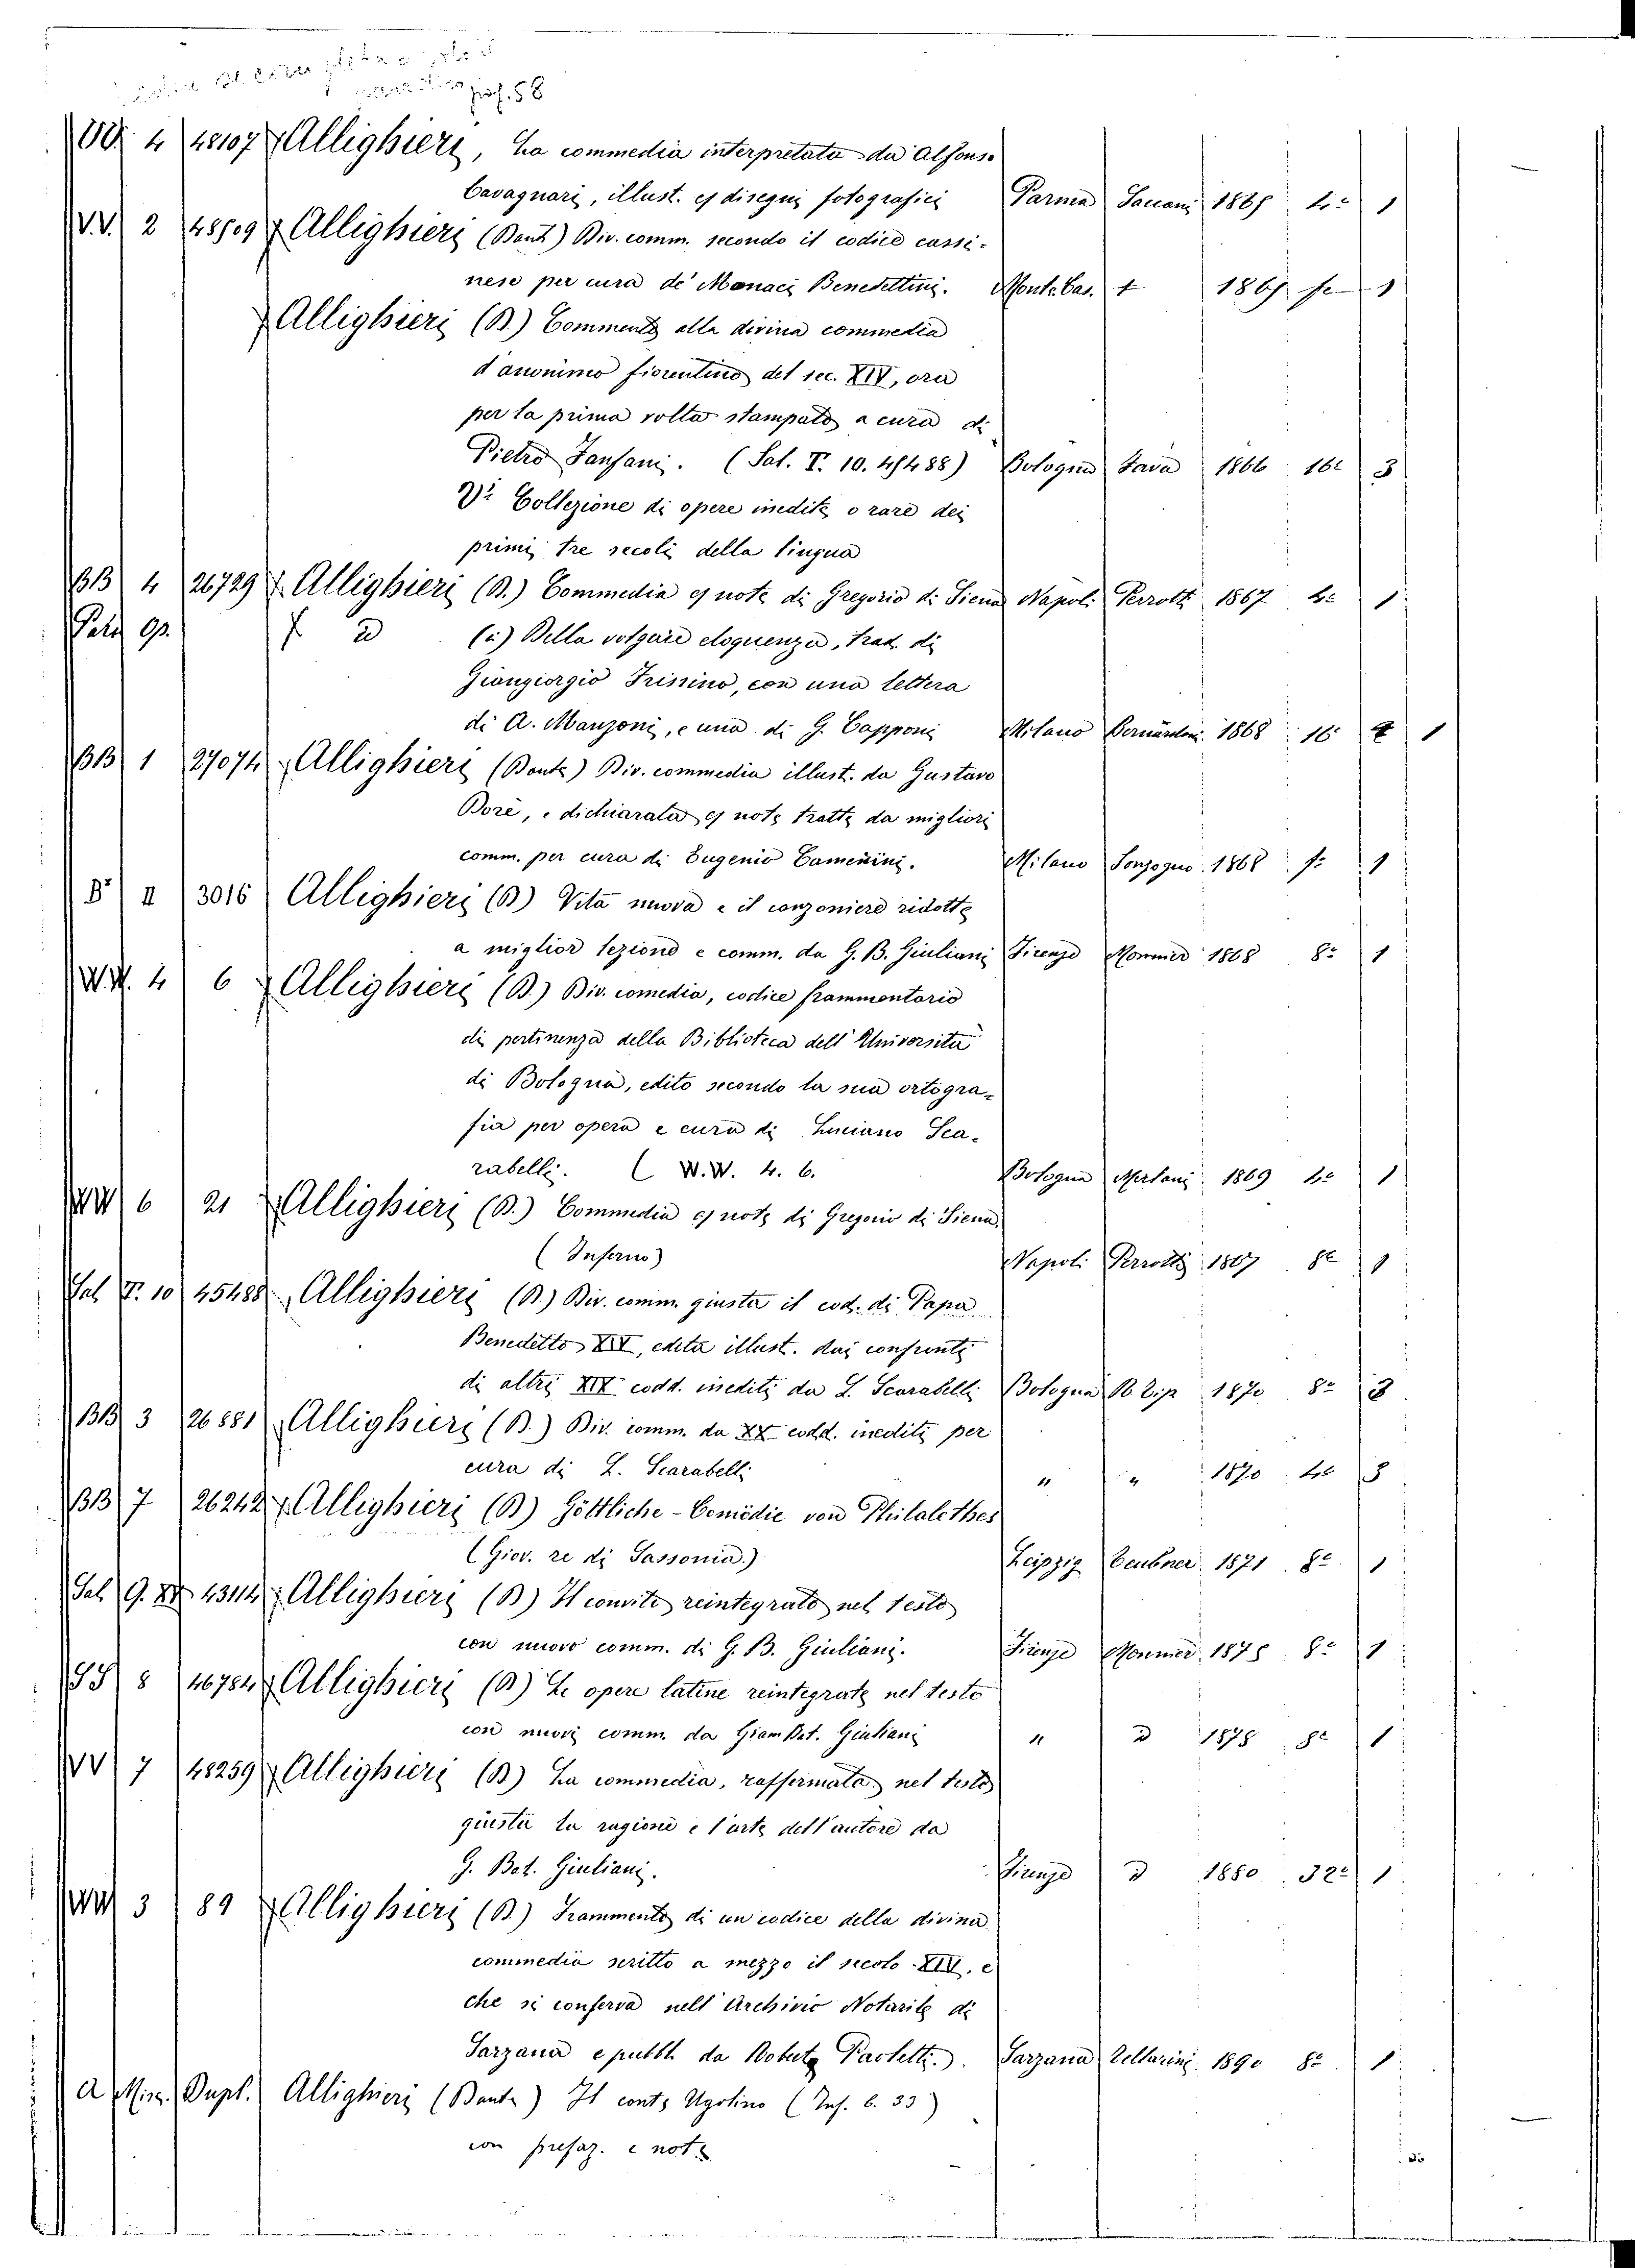 58
4 48107 Allighieri, La commedia interpretata da Alfonso
Cavagnari, illust. disegni fotografici Parma 1
V.V. 2 Allighieri (Dante) Div. comm. secondo il codice cassi-
nese per cura de' Monaci Benedettini. 1
Allighieri (D.) Commento alla divina commedia
d'anonimo fiorentino del sec. XIV, ora
per la prima volta stampato a cura di
Pietro Fanfani. (Sal. T. 10. Bologna 1866 16 3
Collezione di opere inedite o rare dei
primi tre secoli della lingua
BB 4 26729 Allighieri (D.) Commedia note di Gregorio di Siena Napoli Perrotti 1867 1
Della volgare eloquenza, trad. di
Giangiorgio Trissino, con una lettera
di A. Manzoni, e una di G. Capponi Milano Bernardoni 1868 16 1
BB 1 27074 Allighieri (Dante) Div. commedia illust. da Gustavo
Doré, e dichiarata note tratte da migliori
comm. per cura di Eugenio Camerini. Milano Sonzogno 1868 1
II 3016 Allighieri (D) Vita nuova e il canzoniere ridotte
a miglior lezione e comm. da G. B. Giuliani Firenze Monnier 1868 8º 1
W.W. 4 6 Allighieri (D.) Div. comedia, codice frammentario
di pertinenza della Biblioteca dell' Università
di Bologna, edito secondo la sua ortogra-
fia per opera e cura di Luciano Sca-
rabelli. ( W.W. 4. 6. Bologna 1869 1
WW 6 21 Allighieri (D.) Commedia note di Gregorio di Siena
(Inferno) Napoli Perrotti 1
Sal T. 10 45488 Allighieri (D.) Div. comm. giusta il cod. di Papa
Benedetto XIV, edita illust. dai confronti
di altri XIX codd. inediti da L. Scarabelli Bologna 1870 8º 3
BB 3 26881 Allighieri (D.) Div. comm. da XX codd. inediti per
cura di L. Scarabelli " " 1870 3
BB 7 26242 Allighieri (D) Göttliche-Comödie von Philalethes
(Giov. re di Sassonia.) Leipzig Teubner 1871 8º 1
Allighieri (D) Il convito reintegrato nel testo
con nuovo comm. di G. B. Giuliani. Firenze Monnier 1875 8º 1
8 46784 Allighieri (D) Le opere latine reintegrate nel testo
con nuovi comm. da Giambat. Giuliani " 1878 8º 1
VV 7 48259 Allighieri (D) La commedia, raffermata nel testo
giusta la ragione e l'arte dell'autore da
G. Bat. Giuliani. Firenze 1880 32º 1
WW 3 89 Allighieri (D.) Frammento di un codice della divina
commedia scritto a mezzo il secolo XIV, e
che si conserva nell' Archivio Notarile di
Sarzana e pubbl. da Roberto Paoletti. Sarzana Tellarini 1890 8º 1
A Misc. Dupl. Allighieri (Dante) Il conte Ugolino (Inf. C. 33)
con prefaz. e note